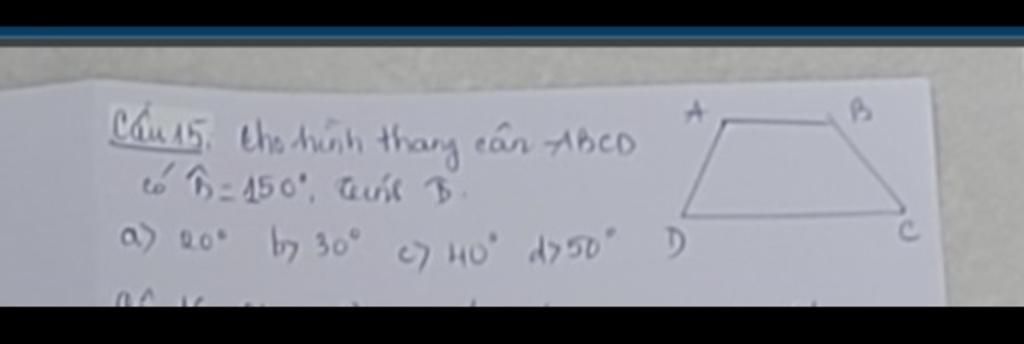 Câu 15. Cho hình thang cân ABCD
có = 150°.
a) 20° b) 30° c) 40° d) 50°
A B
D C